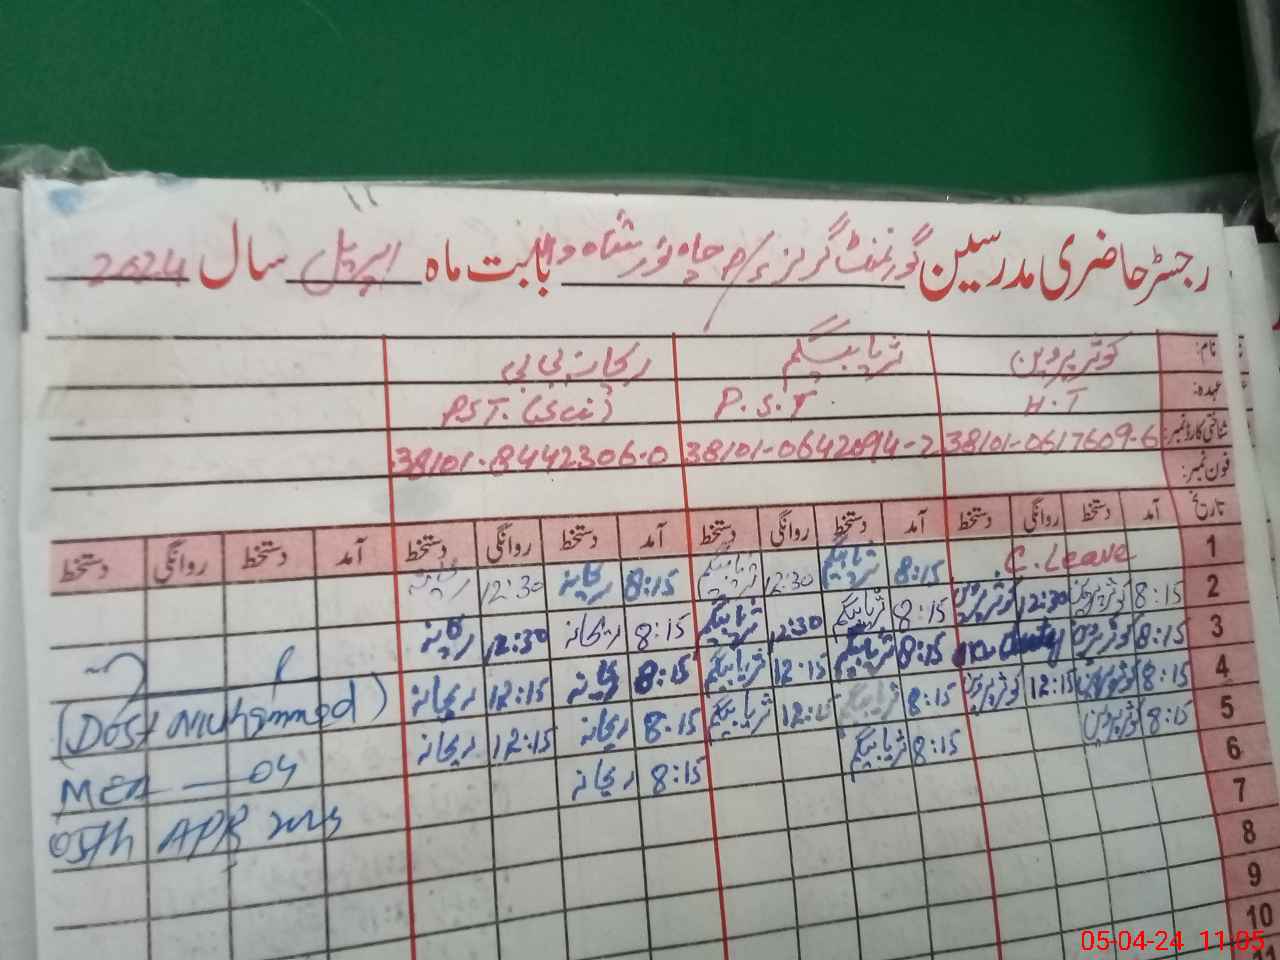 رجسٹر حاضری مدرسین گورنمنٹ گرلز پ/س چاہ نور شاہ والا بابت ماہ اپریل سال 2024
نام: کوثر پروین ثریا بیگم ریحانہ بی بی
عہدہ: H.T P.S.T. PST. (Sci)
شناختی کارڈ نمبر: 38101-0617609-6 38101-0642894-2 38101-8442306-0
فون نمبر:
تاریخ آمد دستخط روانگی دستخط آمد دستخط روانگی دستخط آمد دستخط روانگی دستخط آمد دستخط روانگی دستخط
1 C. Leave 8:15 ثریا بیگم 12:30 ثریا بیگم 8:15 ریحانہ 12:30 ریحانہ
2 8:15 کوثر پروین 12:30 کوثر پروین 8:15 ثریا بیگم 12:30 ثریا بیگم 8:15 ریحانہ 12:30 ریحانہ
3 8:15 کوثر پروین on duty 8:15 ثریا بیگم 12:15 ثریا بیگم 8:15 ریحانہ 12:15 ریحانہ
4 8:15 کوثر پروین 12:15 کوثر پروین 8:15 ثریا بیگم 12:15 ثریا بیگم 8:15 ریحانہ 12:15 ریحانہ
5 8:15 کوثر پروین 8:15 ثریا بیگم 8:15 ریحانہ
6
7
8
9
10
11
(Dost Muhammad)
MEA — 04
05th APR 2024
05-04-24 11:05